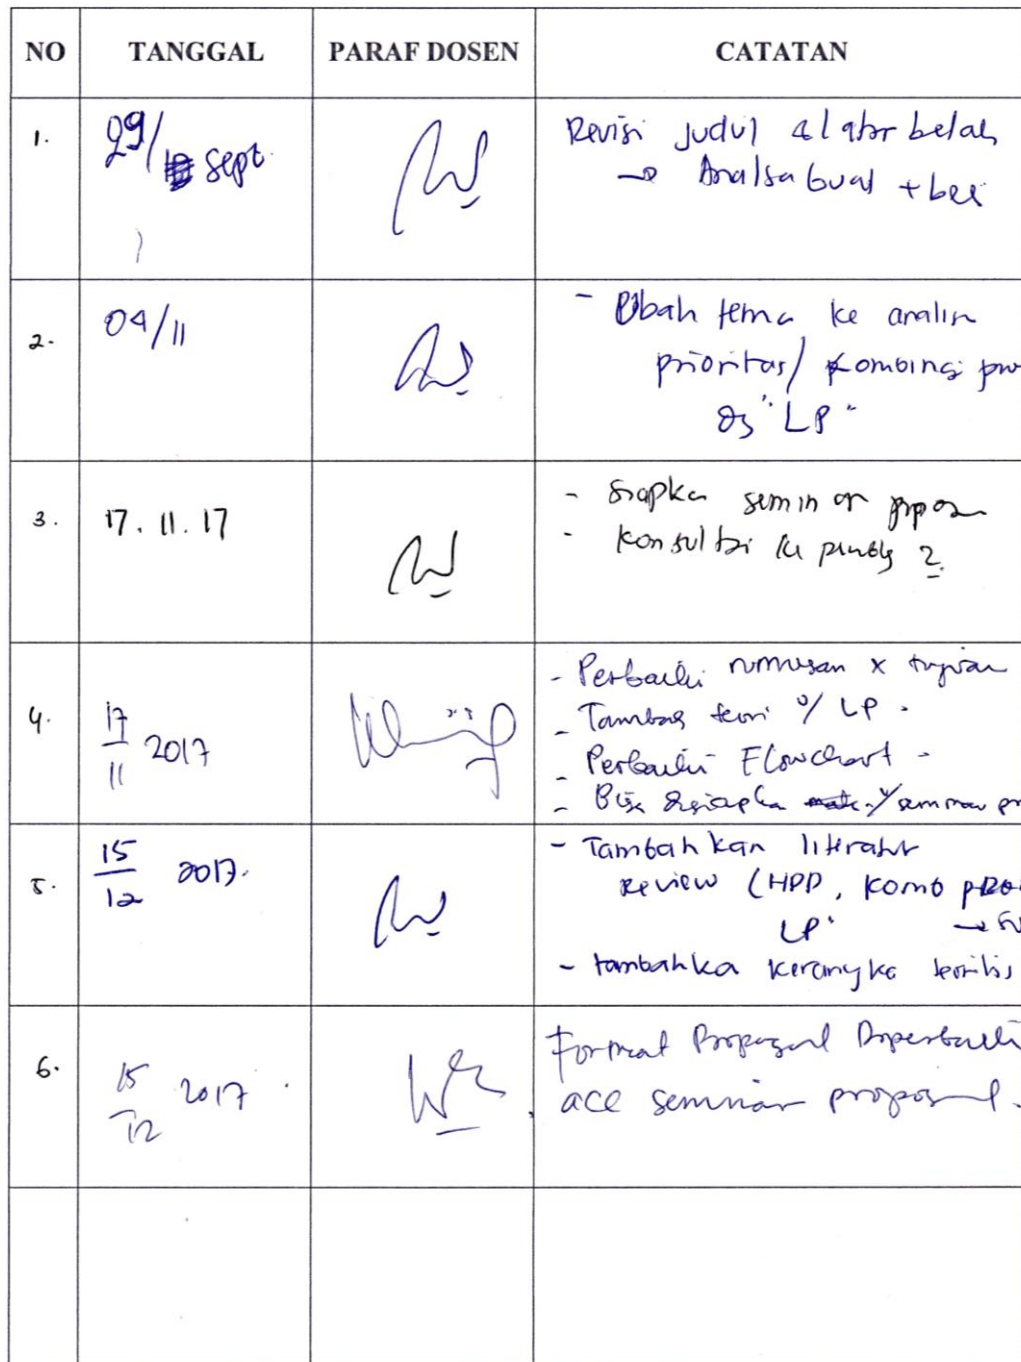 NO TANGGAL PARAF DOSEN CATATAN
1. 29/ Sept. Revisi judul & latar belak
→ Analsa buat + beli
2. 04/11 - Ubah tema ke analisn
prioritas/ Kombinasi pro
dg "LP"
3. 17.11.17 - Siapka seminar propos
- Konsultsi ke 2
4. 17/11 2017 - Perbaiki rumusan & tujuan
- Tambah teori u/ LP.
- Perbaiki Flowchart -
- Bisa disiapka u/ seminar pr
5. 15/12 2017. - Tambahkan literatur
Review (HPP, Komb prod
LP.
- tambahka kerangka teoritis
6. 15/12 2017 Format Proposal Diperbaiki
acc seminar proposal.